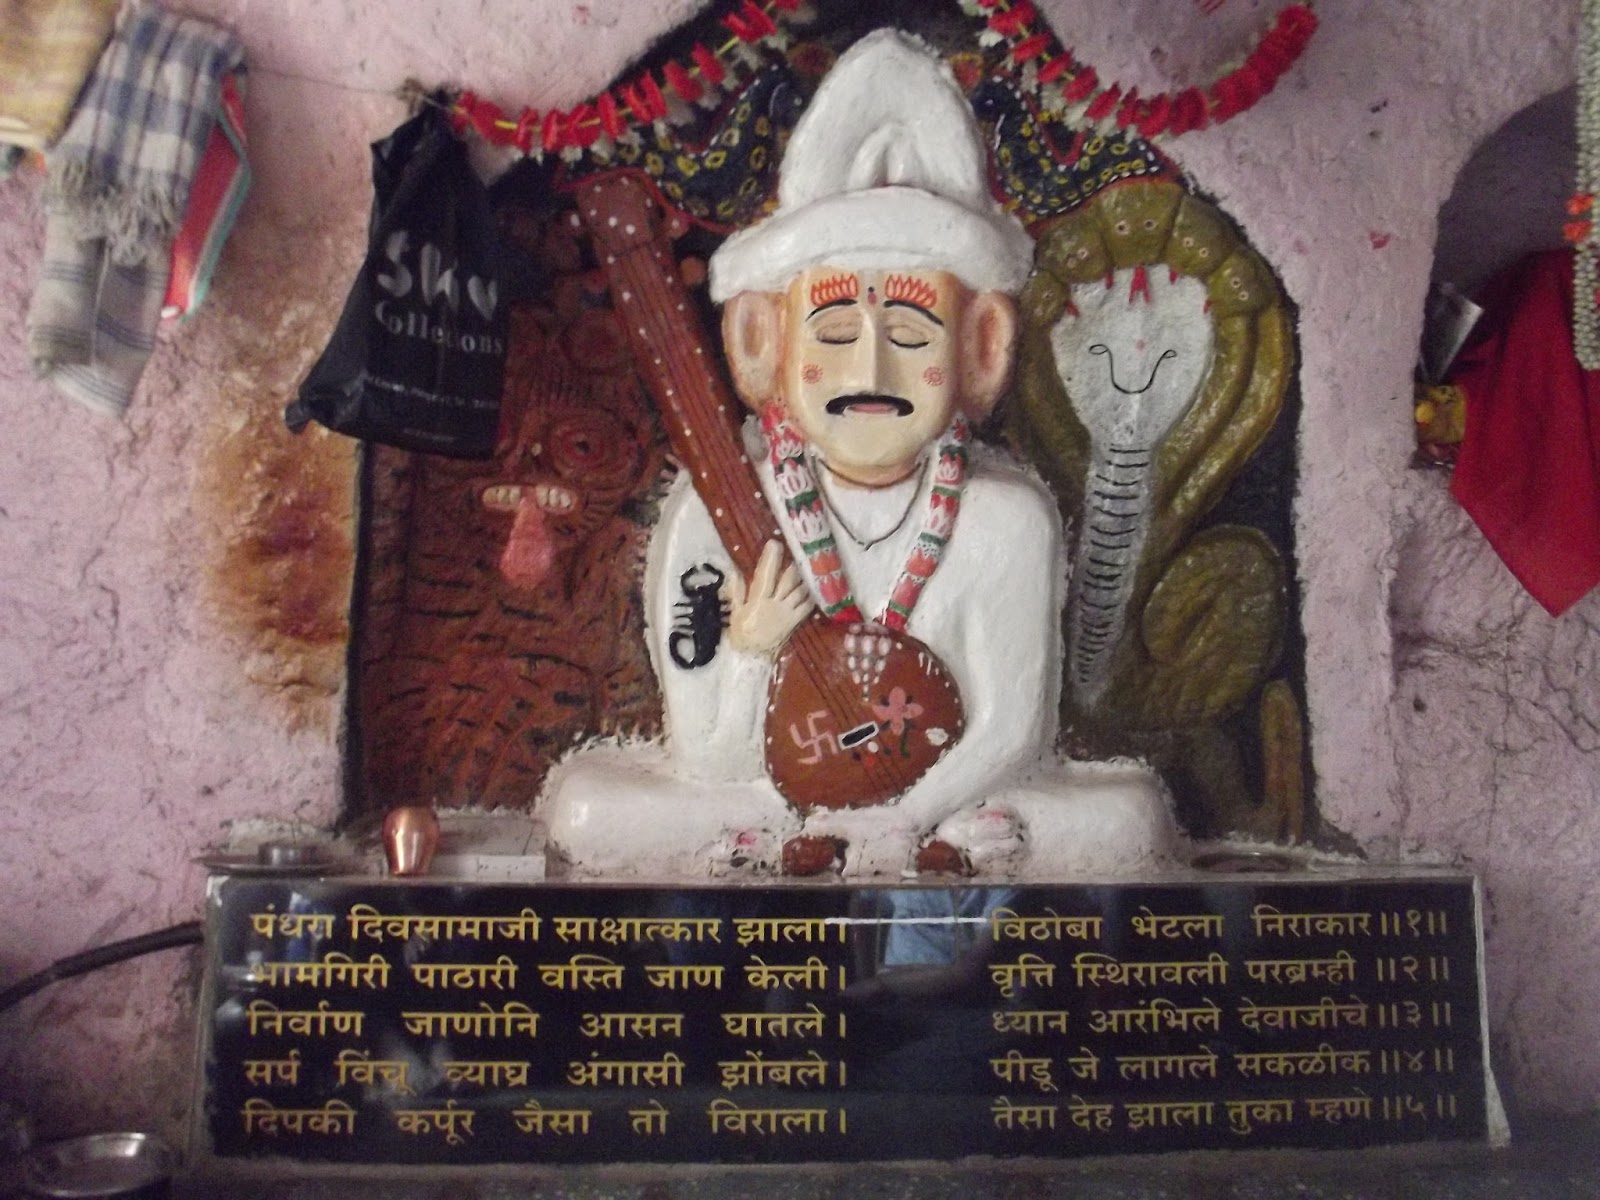 SHIV
Collections
पंधरा दिवसामाजी साक्षात्कार झाला। विठोबा भेटला निराकार॥१॥
भामगिरी पाठारी वस्ति जाण केली। वृत्ति स्थिरावली परब्रम्ही ॥२॥
निर्वाण जाणोनि आसन घातले। ध्यान आरंभिले देवाजीचे॥३॥
सर्प विंचू व्याघ्र अंगासी झोंबले। पीडू जे लागले सकळीक॥४॥
दिपकी कर्पूर जैसा तो विराला। तैसा देह झाला तुका म्हणे॥५॥